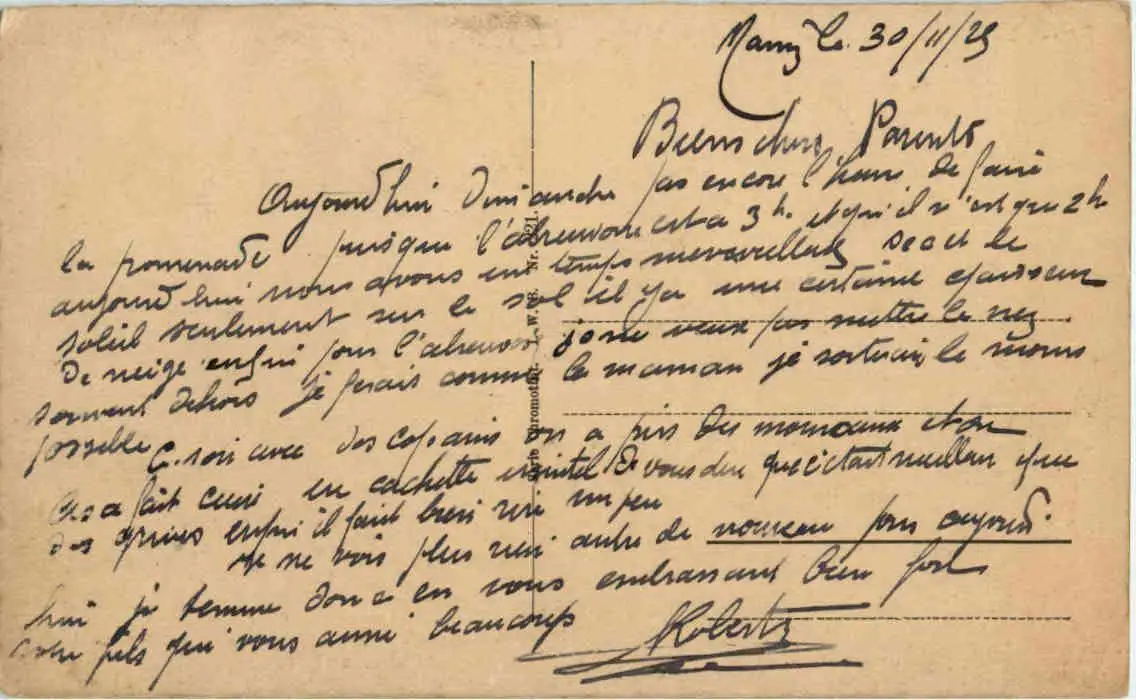 le 30/11/25
Biens chers Parents
Aujourd'hui Dimanche pas encore l'heure de faire
la promenade puisque l'abreuvoir est a 3h. et qu'il n'est que 2h
aujourd'hui nous avons un temps merveilleux sec et le
soleil seulement sur le sol il y a une certaine epaisseur
de neige enfin pour l'abreuvoir je ne veux pas mettre le nez
souvent dehors je ferais comme la maman je sortirai le moins
possible
Ce soir avec des copains on a pris des moineaux et on
les a fait cuire en cachette inutile de vous dire que c'etait meilleur que
des grives enfin il faut bien rire un peu
Je ne vois plus rien autre de nouveau pour aujourd'
hui je termine donc en vous embrassant bien fort
votre fils qui vous aime beaucoup
Robert
Nr. 21.